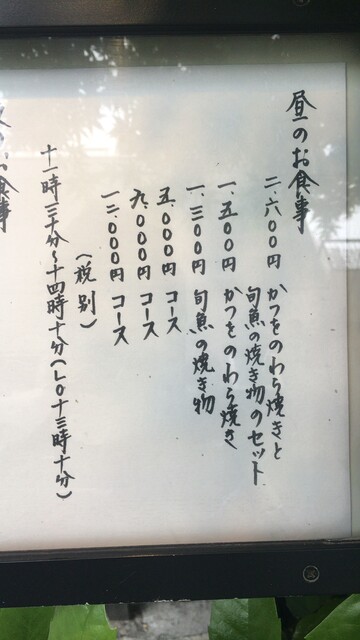 昼のお食事
二.六〇〇円 かつをのわら焼きと
旬魚の焼き物のセット
一.五〇〇円 かつをのわら焼き
一.三〇〇円 旬魚の焼き物
五.〇〇〇円 コース
九.〇〇〇円 コース
一二.〇〇〇円 コース
（税別）
十一時三十分〜十四時十分（L〇十三時十分）
のお食事